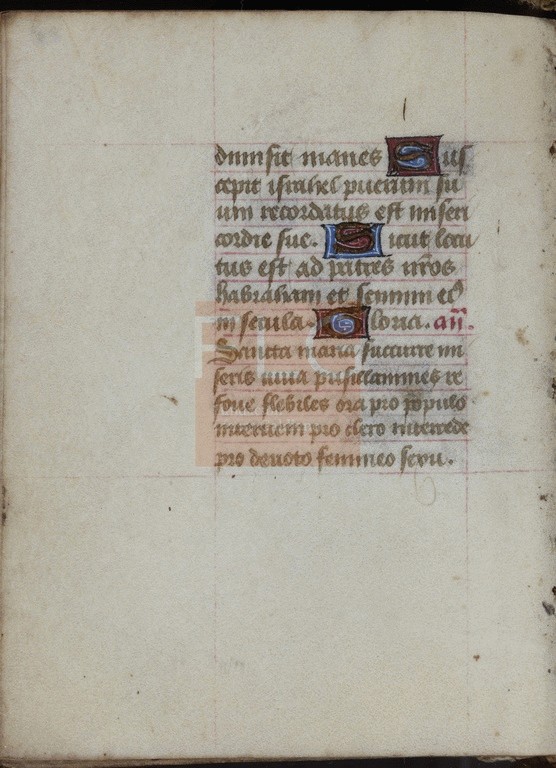 dimisit inanes Sus
cepit israhel puerum su
um recordatus est miseri
cordie sue. Sicut locu
tus est ad patres nr̄os
habraham et semini eiꝰ
in secula. Gloria. añ.
Sancta maria succurre mi
seris iuua pusillanimes re
foue flebiles ora pro populo
interueni pro clero intercede
pro deuoto femineo sexu.